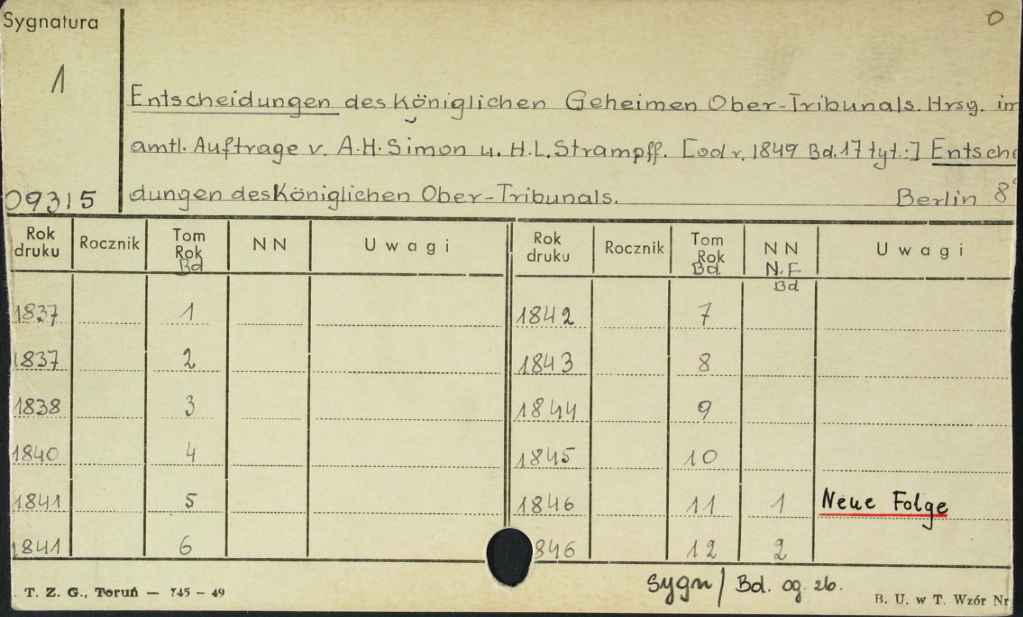 Sygnatura
1
09315
Entscheidungen des Königlichen Geheimen Ober-Tribunals. Hrsg. im
amtl. Auftrage v. A.H. Simon u. H.L. Strampff. [od r. 1849 Bd. 17 tyt.:] Entsche
dungen des Königlichen Ober-Tribunals. Berlin 8°
Rok druku Rocznik Tom Rok Bd NN Uwagi Rok druku Rocznik Tom Rok Bd. NN N.F Bd Uwagi
1837 1 1842 7
1837 2 1843 8
1838 3 1844 9
1840 4 1845 10
1841 5 1846 11 1 Neue Folge
1841 6 846 12 2
Sygn/ Bd. og. 26.
T. Z. G., Toruń — 745 – 49
B. U. w T. Wzór Nr
0